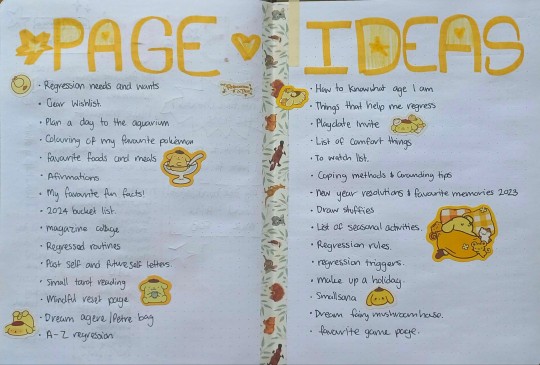 PAGE
• Regression needs and wants
• Gear Wishlist
• Plan a day to the aquarium
• Colouring of my favourite pokemon
• favourite foods and meals
• Afirmations
• My favourite fun facts!
• 2024 bucket list.
• magazine collage
• Regressed routines
• Past self and future self letters.
• Small tarot reading
• Mindful reset page
• Dream agere/Petre bag
• A-Z regression
IDEAS
• How to Know what age I am
• Things that help me regress
• Playdate Invite
• List of comfort things
• To watch list.
• Coping methods & Grounding tips
• New year resolutions & favourite memories 2023
• Draw stuffies
• List of seasonal activities.
• Regression rules.
• regression triggers.
• make up a holiday.
• Smallsana
• Dream fairy mushroom house.
• favourite game page.